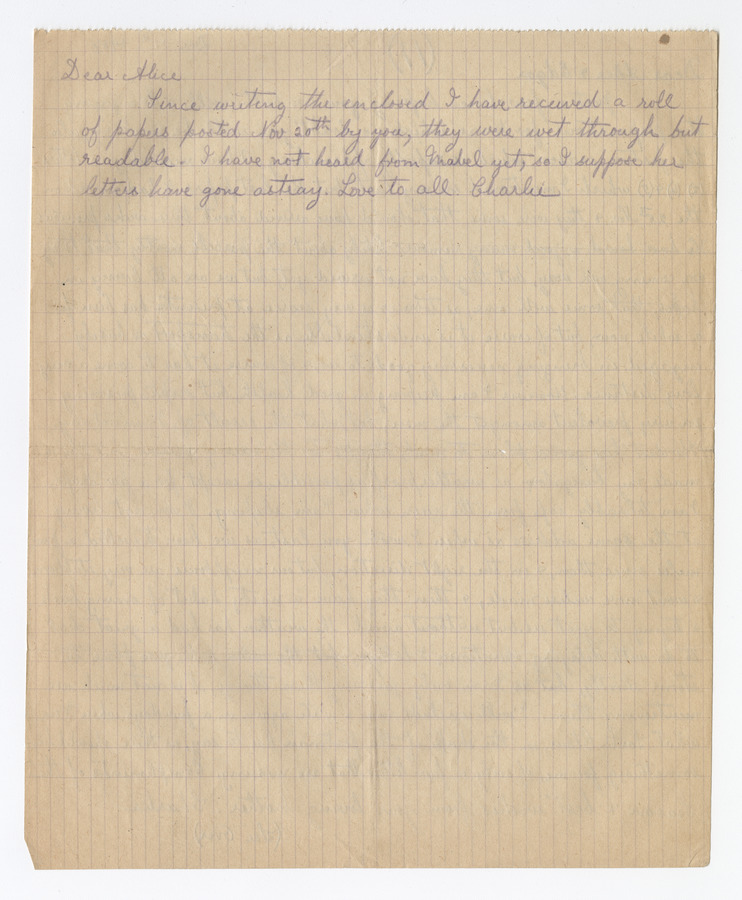 Dear Alice
Since writing the enclosed I have received a roll
of papers posted Nov 20th by you, they were wet through but
readable. I have not heard from Mabel yet, so I suppose her
letters have gone astray. Love to all Charlie